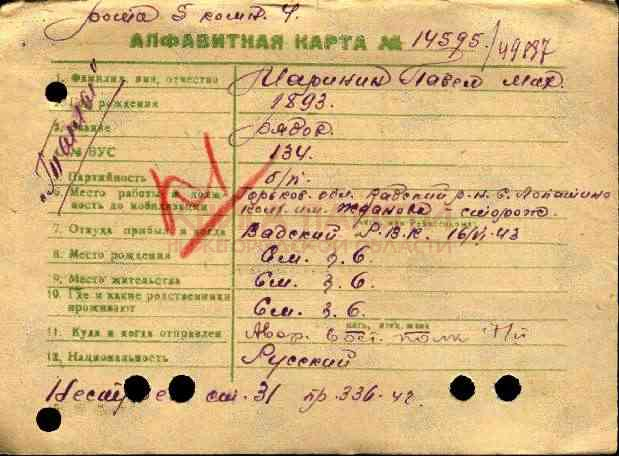 рота 5 комп. 4.
АЛФАВИТНАЯ КАРТА № 14595/49197
1. Фамилия, имя, отчество Шаринин Павел Мах.
рождения 1893.
звание рядов.
№ ВУС 134.
Партийность б/п.
6. Место работы и долж-
ность до мобилизации Горьков. обл. Вадский р-н. с. Лопатино
Колх. им. Жданова сторож.
7. Откуда прибыл и когда Вадский Р.В.К. 16/VI-43
8. Место рождения См. г. 6.
9. Место жительства См. г. 6.
10. Где и какие родственники
проживают См. г. 6.
11. Куда и когда отправлен полк
12. Национальность Русский
ст. 31 пр. 336-42.